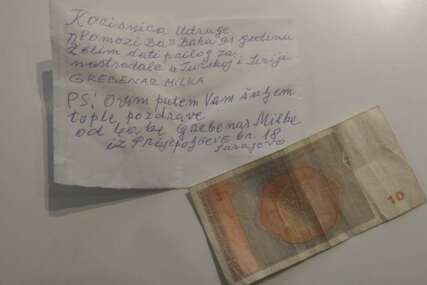 Korisnica Udruge
"Pomozi Ba" Baka 91 godinu
Želim dati prilog za
nastradale u Turskoj i Siriji
GREBENAR MILKA
PS: Ovim putem Vam šaljem
tople pozdrave
od bake Grebenar Milke
iz br. 18
Sarajevo
10